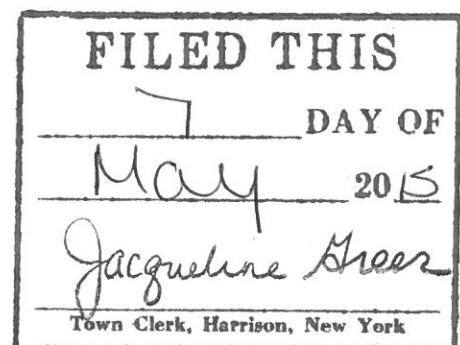 FILED THIS
7 DAY OF
May 2015
Jacqueline Greer
Town Clerk, Harrison, New York